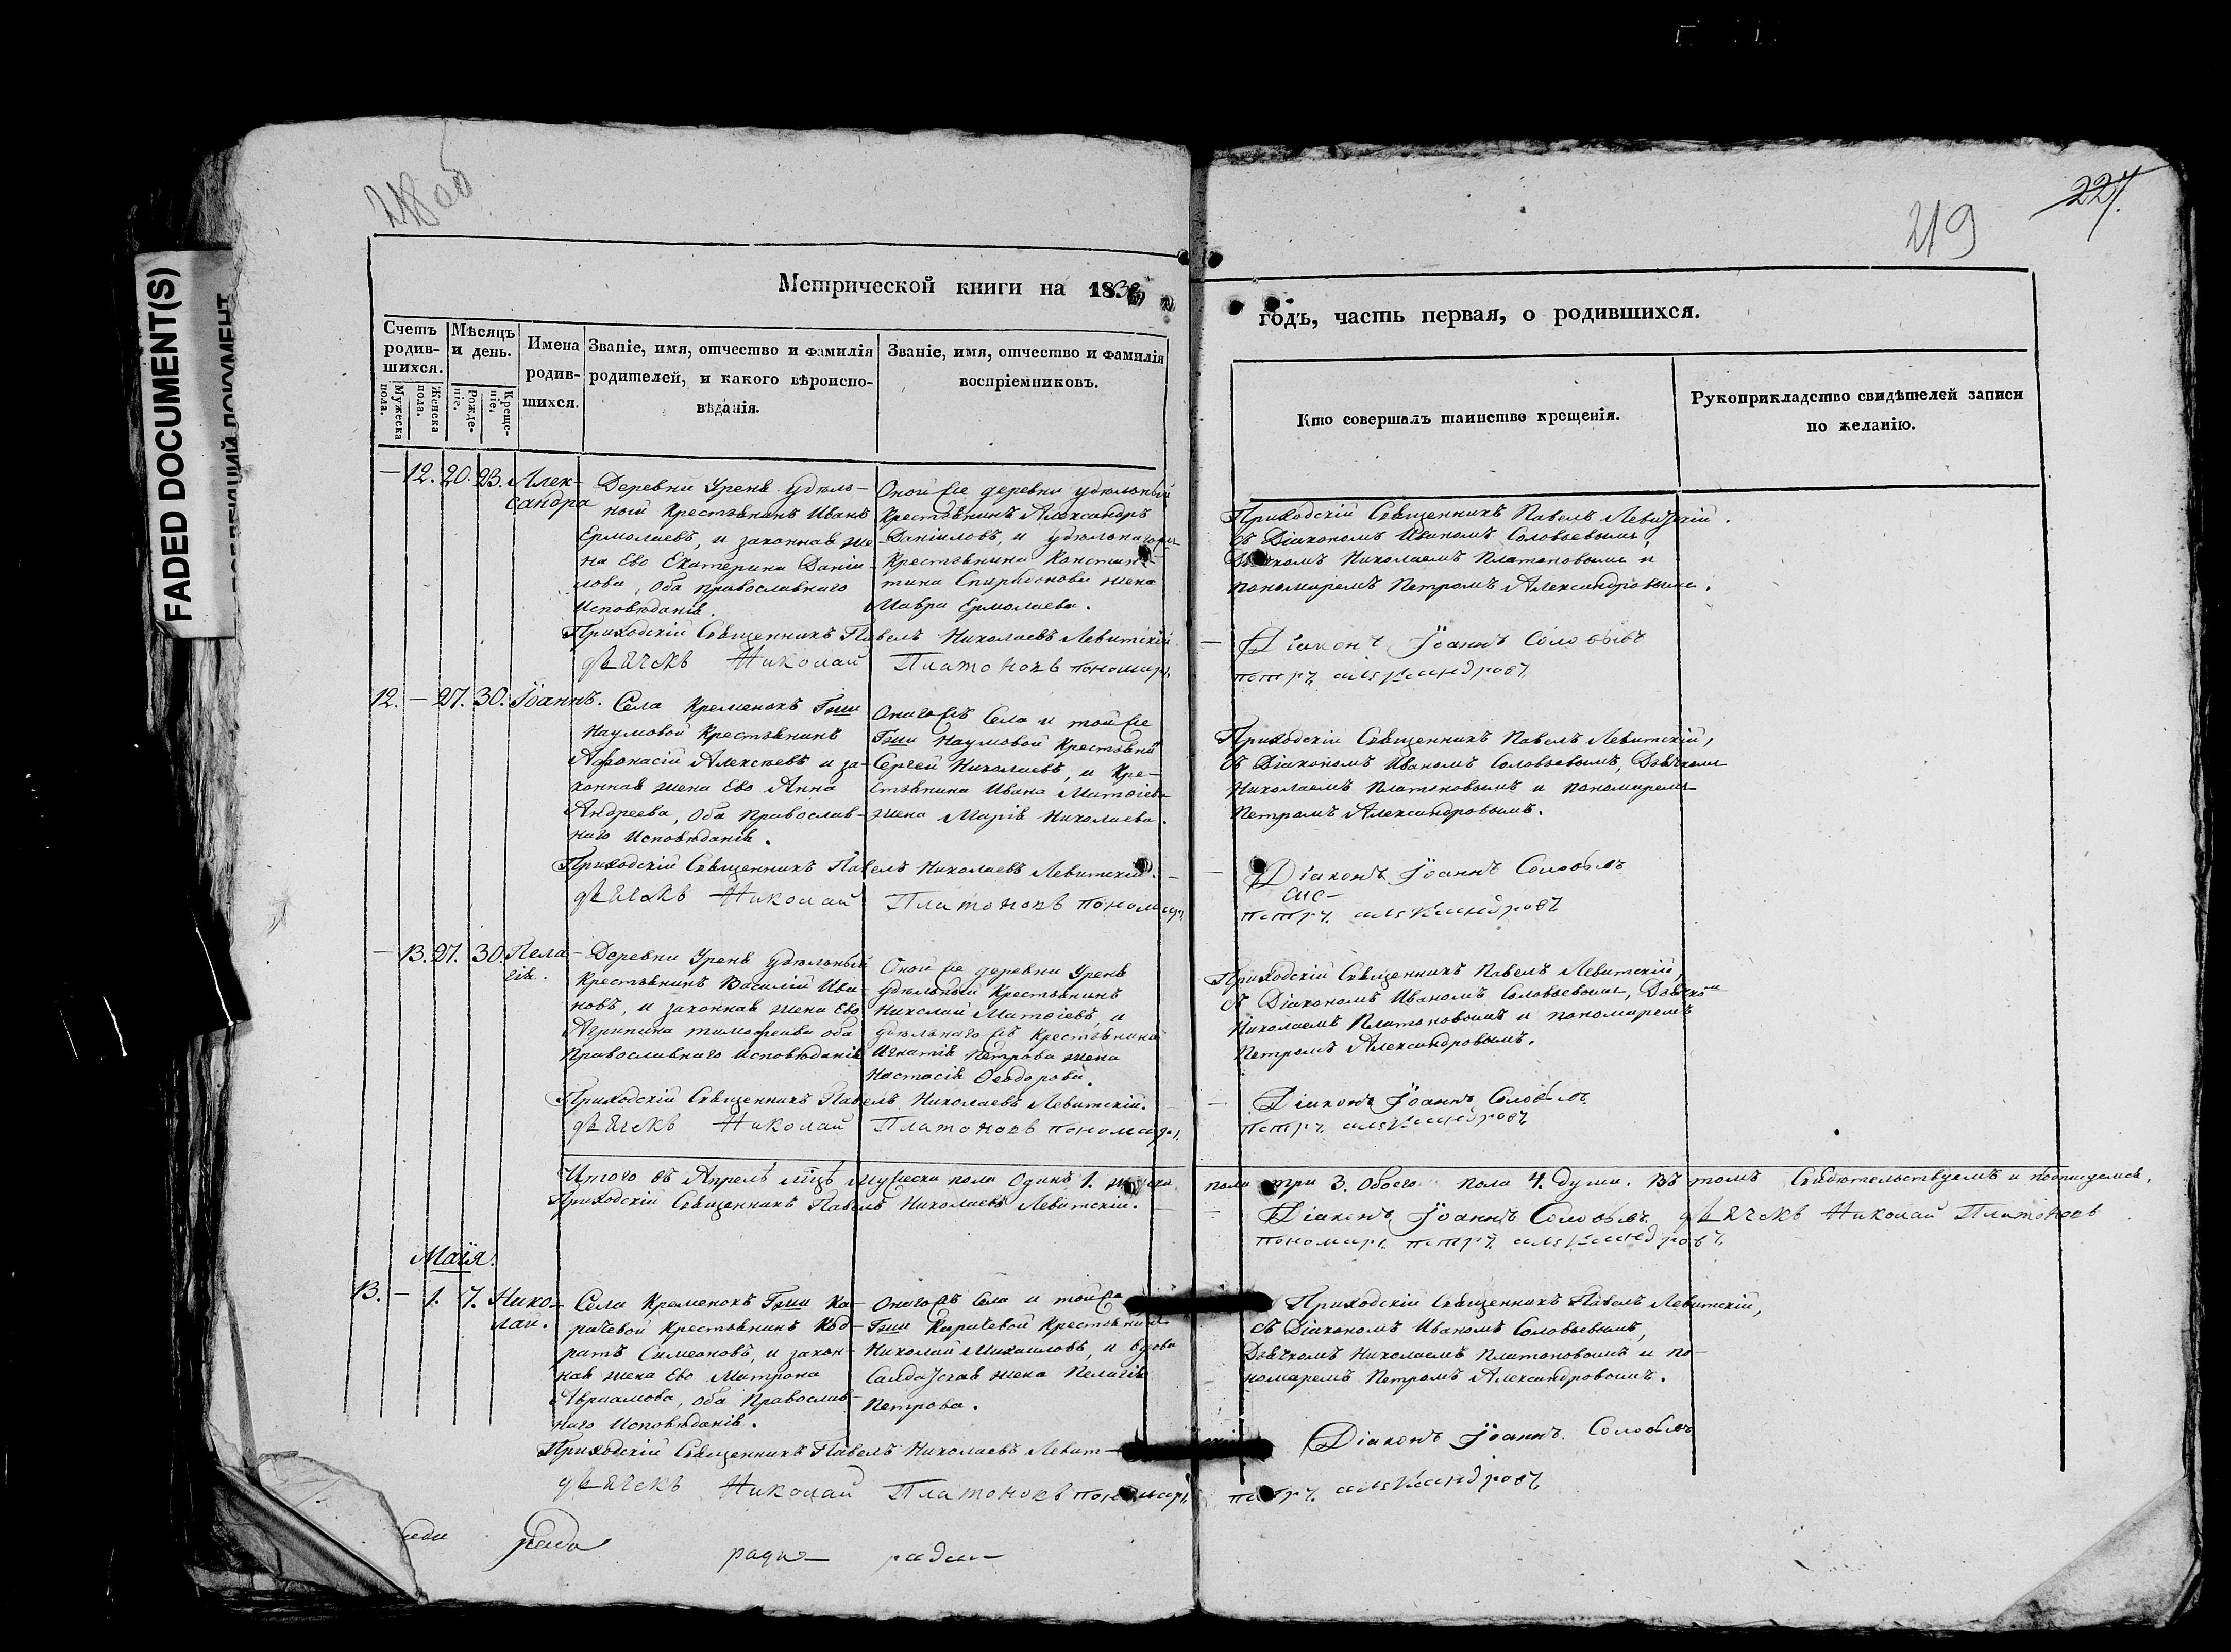 FADED DOCUMENT(S)
218 об
219
227.
Метрической книги на 183
годъ, часть первая, о родившихся.
Счетъ родившихся.
Мужеска пола.
Женска пола.
Мѣсяцъ и день.
Рожденіе.
Крещеніе.
Имена родившихся.
Званіе, имя, отчество и фамилія родителей, и какого вѣроисповѣданія.
Званіе, имя, отчество и фамилія воспріемниковъ.
Кто совершалъ таинство крещенія.
Рукоприкладство свидѣтелей записи по желанію.
— 12. 20. 23. Александра
Деревни Уреня удѣль-
ный Крестьянинъ Иванъ
Ермолаевъ, и законная же-
на Ево Екатерина Даніи-
лова, оба православнаго
Исповѣданія.
Оной же деревни удѣльный
Крестьянинъ Александръ
Даніиловъ, и удѣльнаго
Крестьянина Констан-
тина Спиридонова жена
Мавра Ермолаева.
Приходскій Священникъ Павелъ Левитскій.
съ Діакономъ Иваномъ Соловьевымъ,
Дьячкомъ Николаемъ Платоновымъ и
пономаремъ Петромъ Александровымъ.
Приходскій Священникъ Павелъ Николаевъ Левитскій — Діаконъ Іоаннъ Соловьевъ
дьячекъ Николай Платоновъ пономарь петръ александровъ
12. — 27. 30. Іоаннъ.
Села Кременокъ Гжи
Наумовой Крестьянинъ
Афонасій Алексѣевъ и за-
конная жена Ево Анна
Андреева, Оба Православ-
наго Исповѣданія.
Онагожъ Села и той же
Гжи Наумовой Крестьянинъ
Сергей Николаевъ, и Кре-
стьянина Ивана Матвіева
жена Марія Николаева.
Приходскій Священникъ Павелъ Левитскій,
съ Діакономъ Иваномъ Соловьевымъ, Дьячкомъ
Николаемъ Платоновымъ и пономаремъ
Петромъ Александровымъ.
Приходскій Священникъ Павелъ Николаевъ Левитскій. — Діаконъ Іоаннъ Соловьевъ
дьячекъ Николай Платоновъ пономарь петръ александровъ
— 13. 27. 30. Пелагія.
Деревни Уреня удѣльный
Крестьянинъ Василій Ива-
новъ, и законная жена Ево
Агрипина тимофеева оба
православнаго исповѣданія
Оной же деревни Уреня
удѣльный Крестьянинъ
Николай Матвіевъ, и
удѣльнаго жъ Крестьянина
Игнатія Петрова жена
Настасія Ѳеодорова.
Приходскій Священникъ Павелъ Левитскій,
съ Діакономъ Иваномъ Соловьевымъ, Дьячкомъ
Николаемъ Платоновымъ и пономаремъ
Петромъ Александровымъ.
Приходскій Священникъ Павелъ Николаевъ Левитскій. — Діаконъ Іоаннъ Соловьевъ
дьячекъ Николай Платоновъ пономарь петръ александровъ
Итого въ Апрелѣ мцѣ мужеска пола Одинъ 1. женска пола три 3. обоего пола 4. души. Въ томъ Свидѣтельствуемъ и подписуемся,
Приходскій Священникъ Павелъ Николаевъ Левитскій. — Діаконъ Іоаннъ Соловьевъ. дьячекъ Николай Платоновъ
пономарь петръ александровъ
Маія.
13. — 1. 7. Николай.
Села Кременокъ Гжи Ка-
рачевой Крестьянинъ Код-
ратъ Симеоновъ, и закон-
ная жена Ево Матрона
Авраамова, оба Православ-
наго Исповѣданія.
Онагожъ Села и той же
Гжи Карачевой Крестьянинъ
Николай Михаиловъ, и вдова
Салдатская жена Пелагія
Петрова.
Приходскій Священникъ Павелъ Левитскій,
съ Діакономъ Иваномъ Соловьевымъ,
Дьячкомъ Николаемъ Платоновымъ и по-
номаремъ Петромъ Александровымъ.
Приходскій Священникъ Павелъ Николаевъ Левит Діаконъ Іоаннъ Соловьевъ
дьячекъ Николай Платоновъ пономарь петръ александровъ